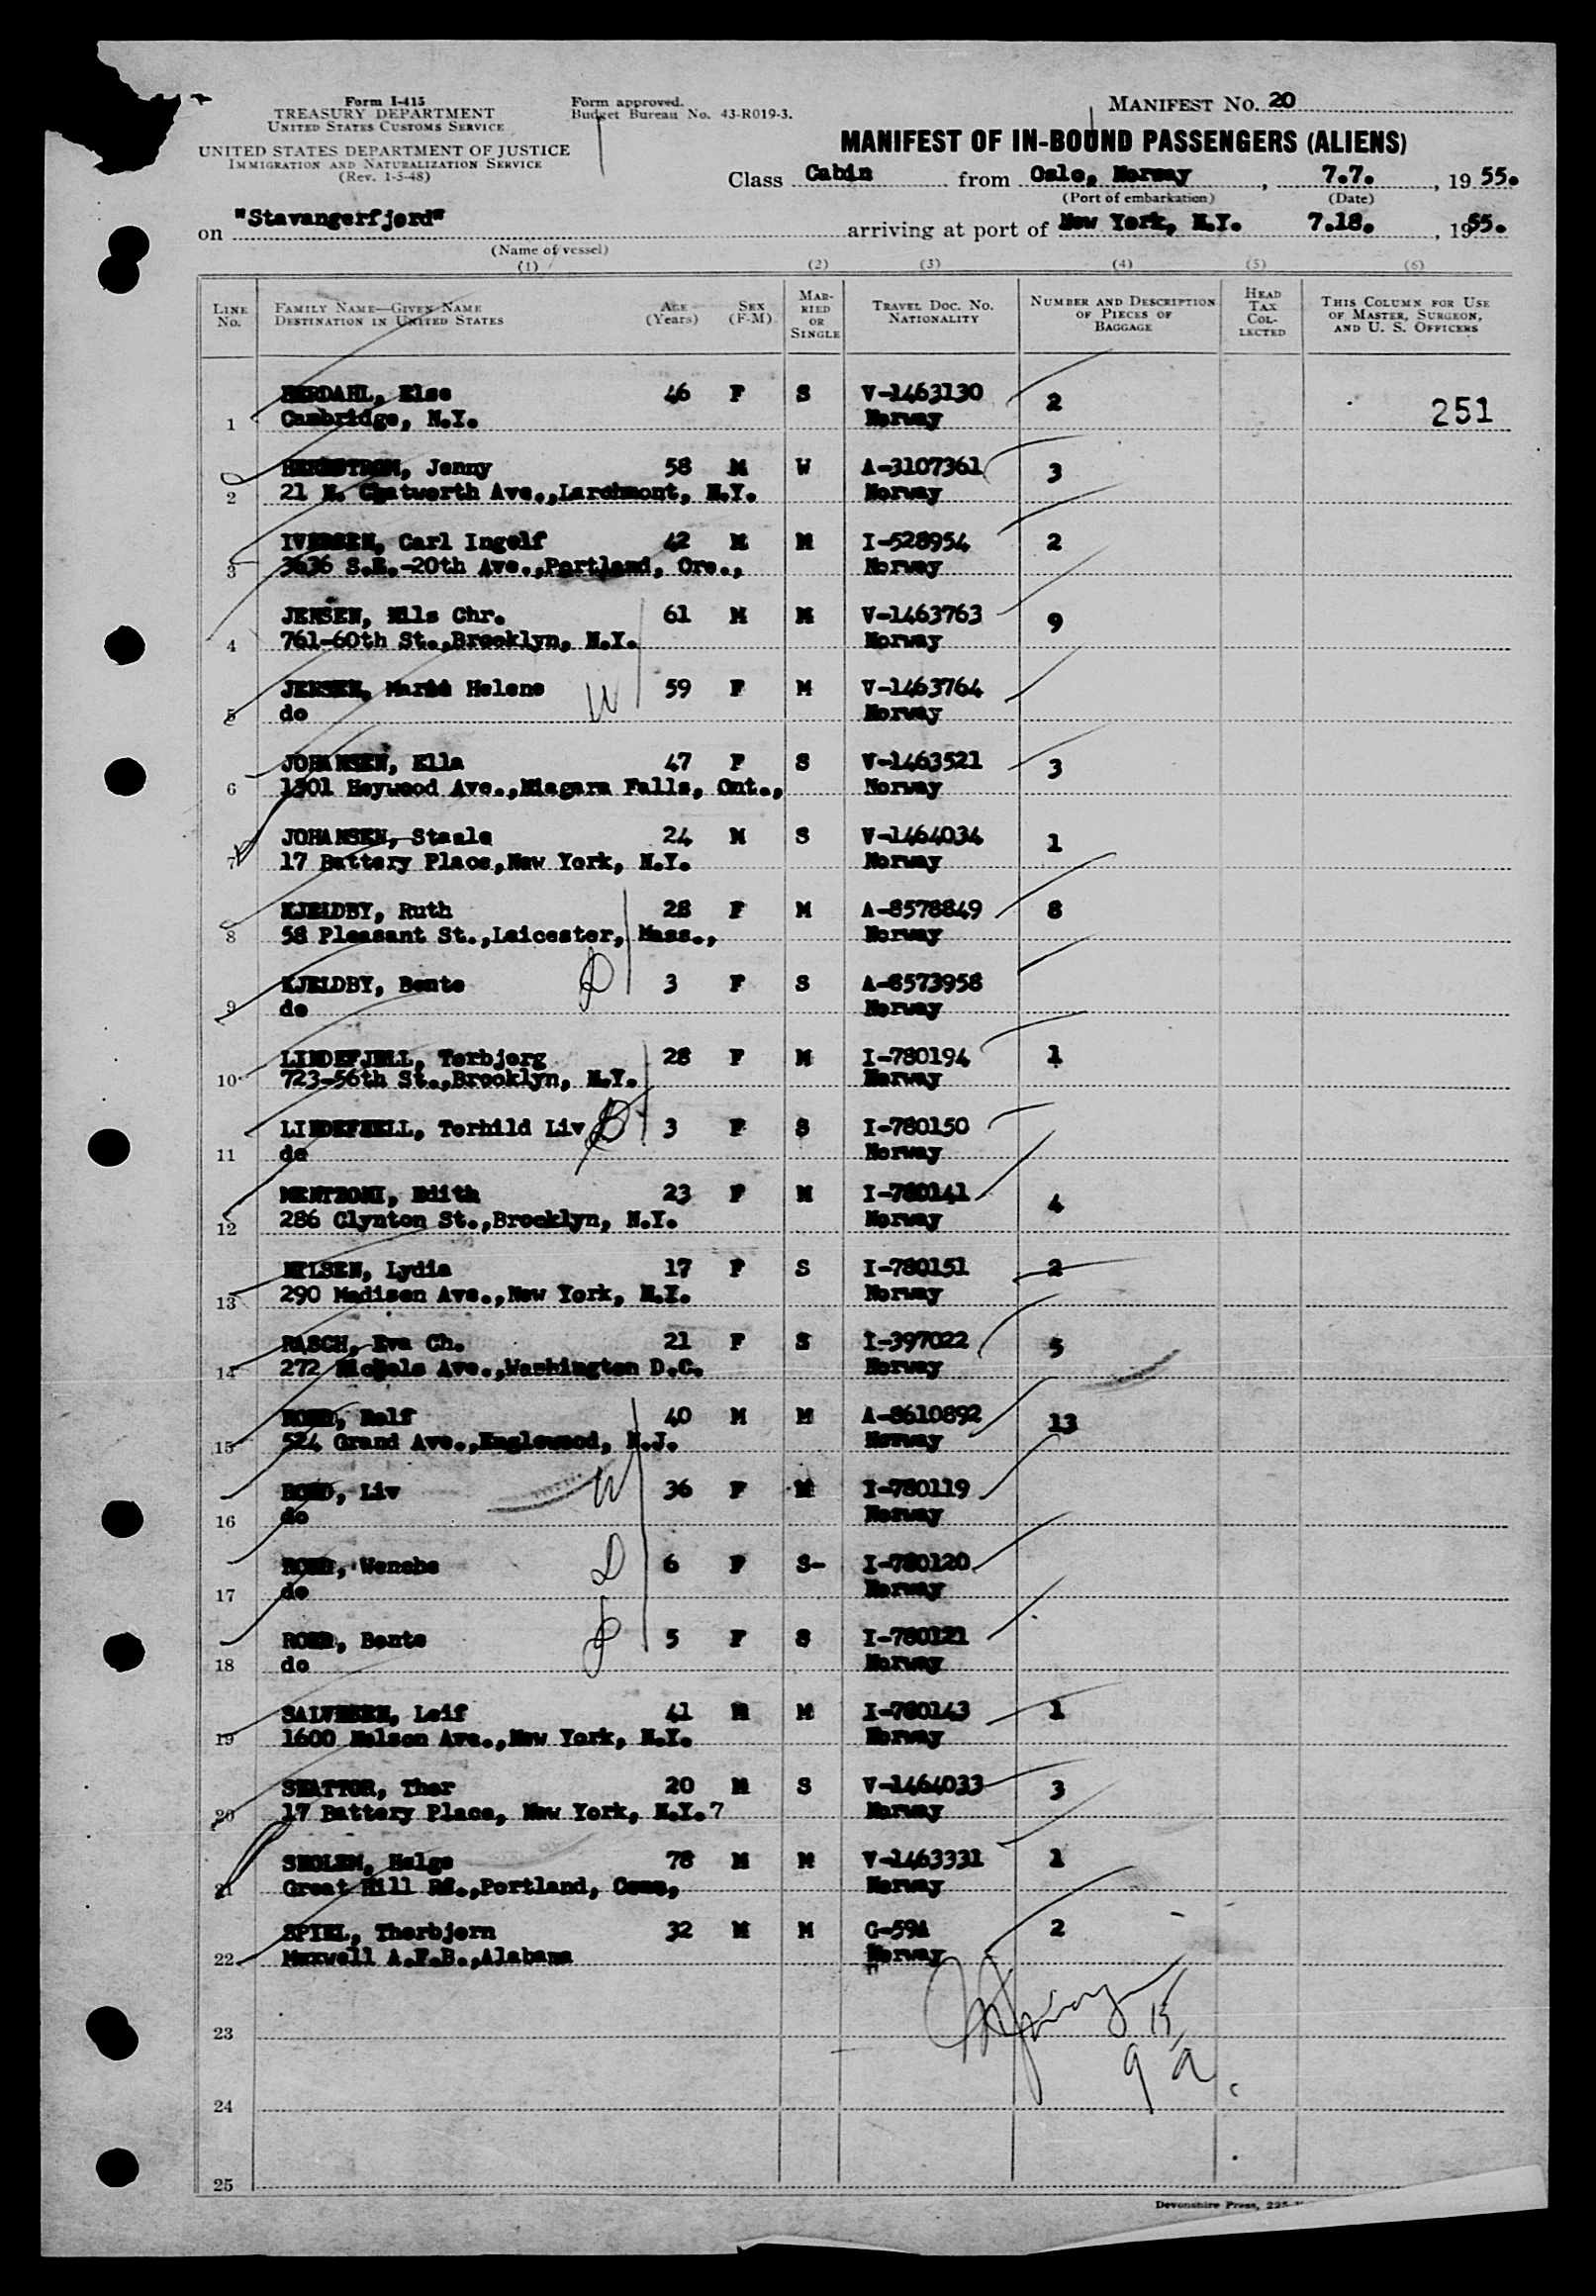 Form I-415
TREASURY DEPARTMENT
UNITED STATES CUSTOMS SERVICE
UNITED STATES DEPARTMENT OF JUSTICE
IMMIGRATION AND NATURALIZATION SERVICE
(Rev. 1-5-48)
Form approved.
Budget Bureau No. 43-R019-3.
MANIFEST NO. 20
MANIFEST OF IN-BOUND PASSENGERS (ALIENS)
Class Cabin from Oslo, Norway, 7.7., 1955.
(Port of embarkation) (Date)
on "Stavangerfjord" arriving at port of New York, N.Y. 7.18., 1955.
(Name of vessel)
(1) (2) (3) (4) (5) (6)
LINE No. FAMILY NAME—GIVEN NAME DESTINATION IN UNITED STATES AGE (Years) SEX (F-M) MARRIED OR SINGLE TRAVEL DOC. NO. NATIONALITY NUMBER AND DESCRIPTION OF PIECES OF BAGGAGE HEAD TAX COLLECTED THIS COLUMN FOR USE OF MASTER, SURGEON, AND U. S. OFFICERS
Else 46 F S V-1463130 2
1 Cambridge, N.Y. Norway 251
Jenny 58 M W A-3107361 3
2 21 N. Chatworth Ave.,Larchmont, N.Y. Norway
IVERSEN, Carl Ingolf 42 M M I-528954 2
3 3636 S.E.-20th Ave.,Portland, Ore., Norway
JENSEN, Nils Chr. 61 M M V-1463763 9
4 761-60th St.,Brooklyn, N.Y. Norway
JENSEN, Helene W 59 F M V-1463764
5 do Norway
JOHANSEN, Ella 47 F S V-1463521 3
6 1301 Heywood Ave.,Niagara Falls, Ont., Norway
JOHANSEN, Staale 24 M S V-1464034 1
7 17 Battery Place,New York, N.Y. Norway
KJELDBY, Ruth 28 F M A-8578849 8
8 58 Pleasant St.,Leicester, Mass., Norway
KJELDBY, Bente D 3 F S A-8573958
9 do Norway
LINDEFJELL, Torbjorg 28 F M I-780194 1
10 723-56th St.,Brooklyn, N.Y. Norway
LINDEFJELL, Torhild Liv D 3 F S I-780150
11 do Norway
MENTZONI, Edith 23 F M I-780141 4
12 286 Clynton St.,Brooklyn, N.Y. Norway
NILSEN, Lydia 17 F S I-780151 2
13 290 Madison Ave.,New York, N.Y. Norway
RASCH, Eva Ch. 21 F S I-397022 5
14 272 Nichols Ave.,Washington D.C. Norway
Rolf 40 M M A-8610892 13
15 524 Grand Ave.,Englewood, N.J. Norway
Liv W 36 F M I-780119
16 do Norway
Wenche D 6 F S- I-780120
17 do Norway
Bente D 5 F S I-780121
18 do Norway
SALVESEN, Leif 41 M M I-780143 1
19 1600 Nelson Ave.,New York, N.Y. Norway
Thor 20 M S V-1464033 3
20 17 Battery Place, New York, N.Y.7 Norway
Helge 78 M M V-1463331 1
21 Great Hill Rd.,Portland, Conn, Norway
SPIEL, Thorbjorn 32 M M G-59A 2
22 Maxwell A.F.B.,Alabama Norway
23
9 a.
24
25
Devonshire Press, 225